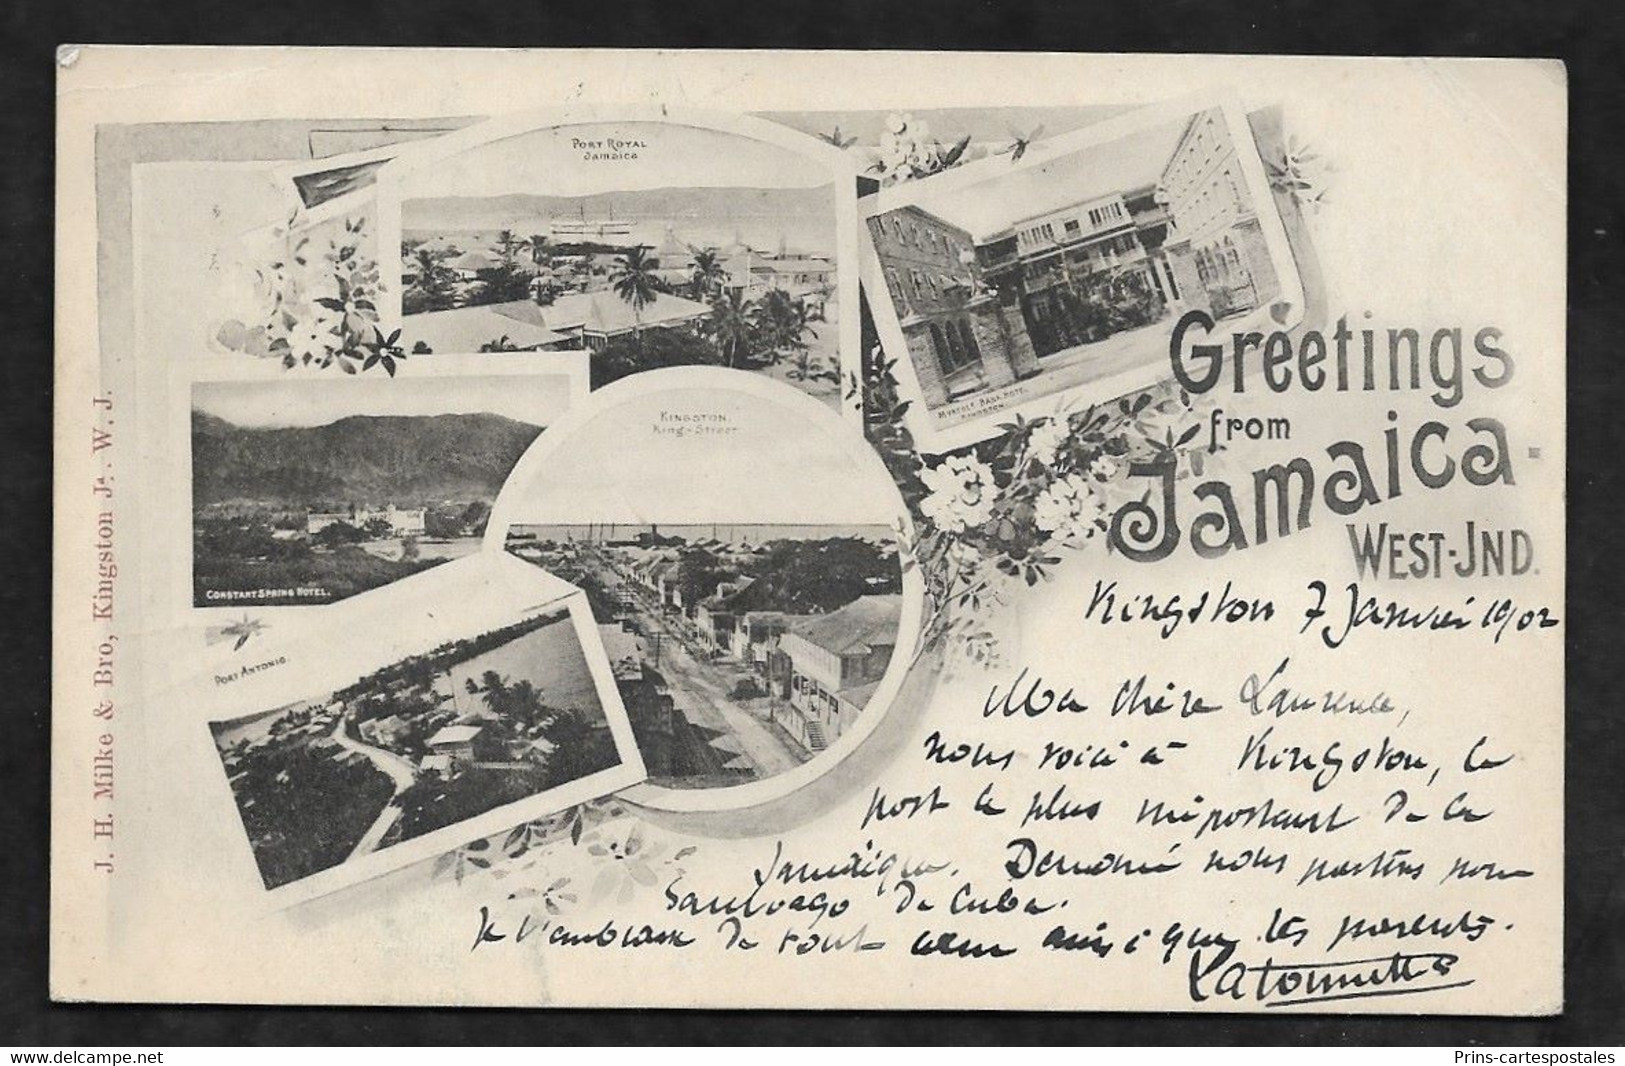 Port Royal
Jamaica
Myrtle Bank Hotel
Kingston
Kingston,
King-Street
Constant Spring Hotel.
Port Antonio.
Greetings
from
Jamaica-
West-Ind.
J. H. Milke & Bro, Kingston Ja. W. J.
Kingston 7 Janvier 1902
Ma chère Laurence,
nous voici à Kingston, le
port le plus important de la
Jamaïque. Demain nous partons pour
Santiago de Cuba.
Je t'embrasse de tout cœur ainsi que tes parents.
delcampe.net
Prins-cartespostales